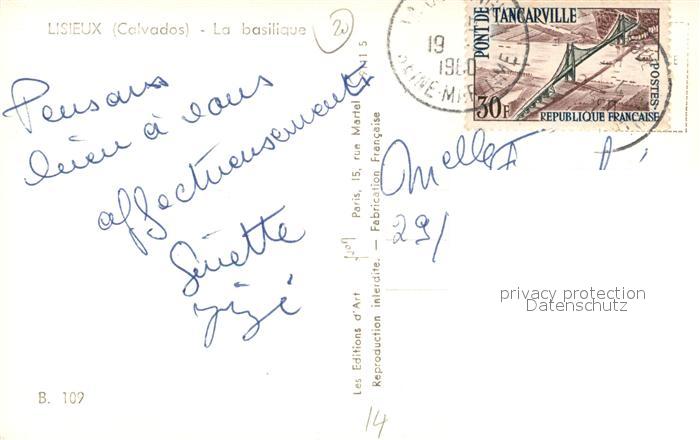 LISIEUX (Calvados) - La basilique
20
Pensons
bien à vous
affectueusement
Ginette
Zizi
B. 109
Les Editions d'Art Yvon Paris, 15, rue Martel
Reproduction interdite. — Fabrication Française
14
19
1960
SEINE-MARITIME
PONT DE TANCARVILLE
30F
POSTES
REPUBLIQUE FRANÇAISE
29/
privacy protection
Datenschutz